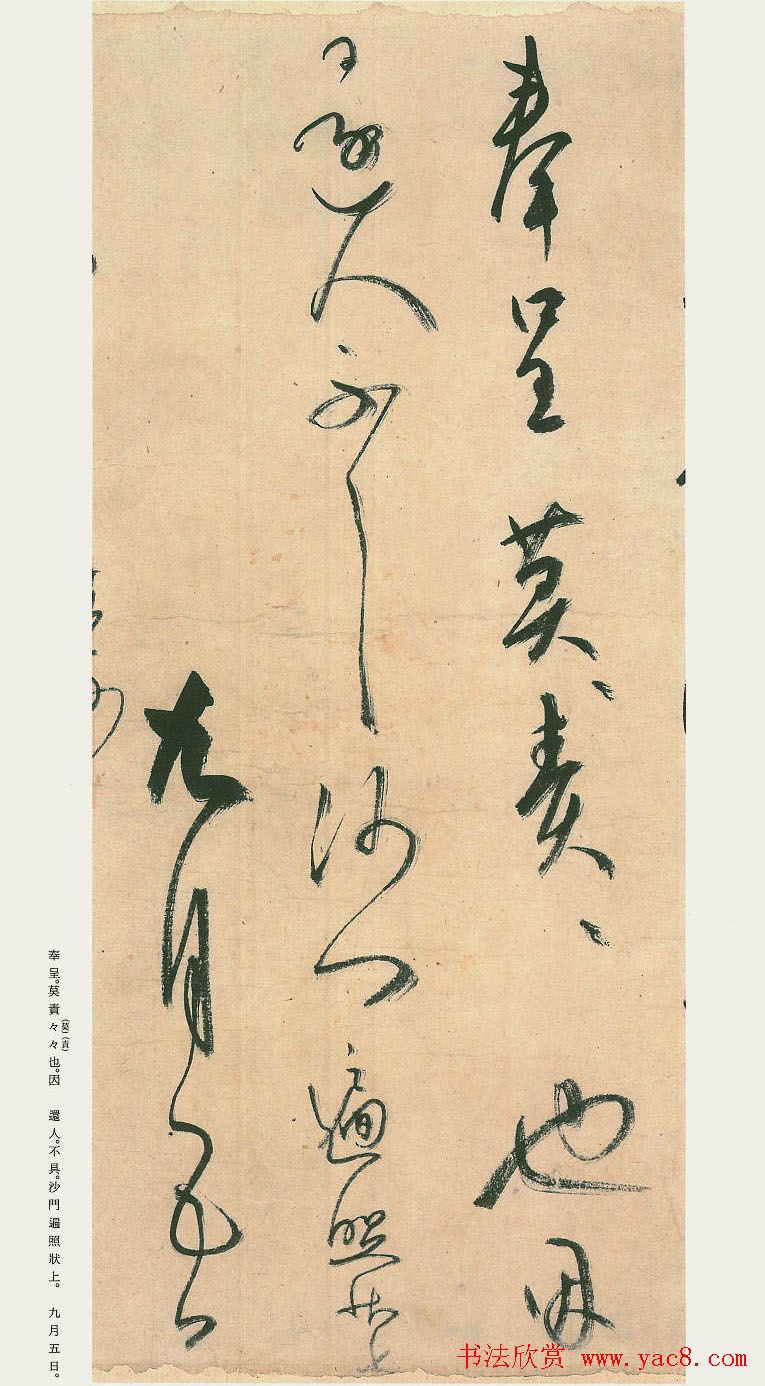 奉呈莫々責々也因
還人不具沙門遍照状上
九月五日
奉呈。莫責々々也。因　還人。不具。沙門遍照狀上。　九月五日。
(莫)(責)
书法欣赏 www.yac8.com